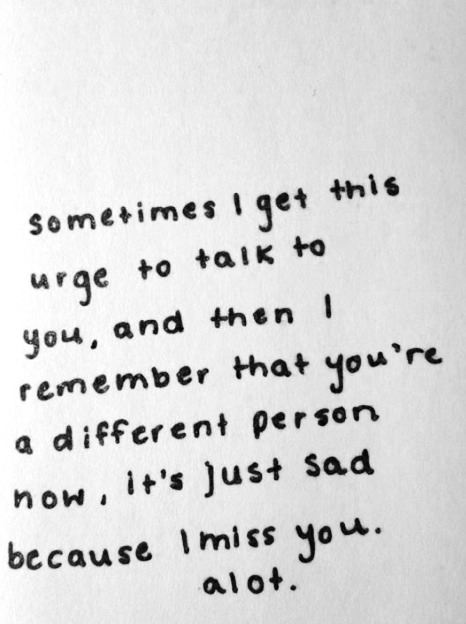 sometimes I get this
urge to talk to
you, and then I
remember that you're
a different person
now, it's just sad
because I miss you.
alot.